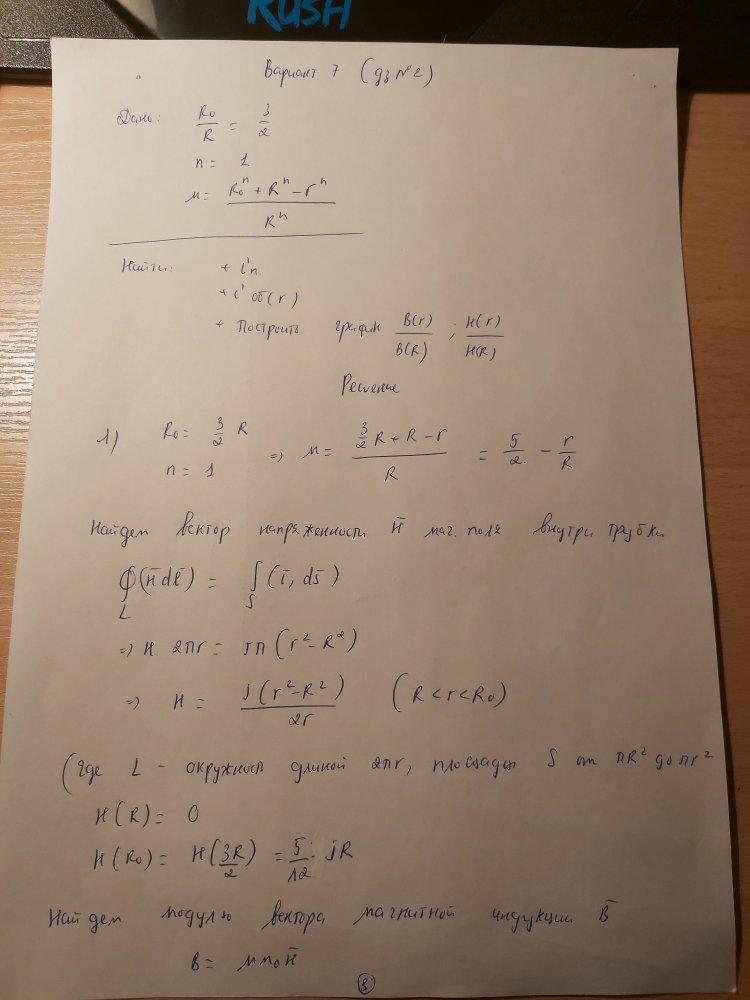 RUSH
Вариант 7 (дз №2)
Дано: R₀/R = 3/2
n = 1
μ = (R₀ⁿ + Rⁿ - rⁿ)/Rⁿ
Найти: + i'п.
+ i' об(r)
+ Построить график B(r)/B(R) ; H(r)/H(R)
Решение
1) R₀ = 3/2 R
n = 1 => μ = (3/2 R + R - r)/R = 5/2 - r/R
Найдем вектор напряженности H̄ маг. поля внутри трубки
∮_L (H̄ dl̄) = ∫_S (ī, ds̄)
=> H. 2πr = jπ(r² - R²)
=> H = j(r² - R²)/2r (R < r < R₀)
(Где L - окружност длиной 2πr, площадью S от πR² до πr²
H(R) = 0
H(R₀) = H(3R/2) = 5/12 · jR
Найдем модулю вектора магнитной индукции B̄
B = μμ₀H̄
3